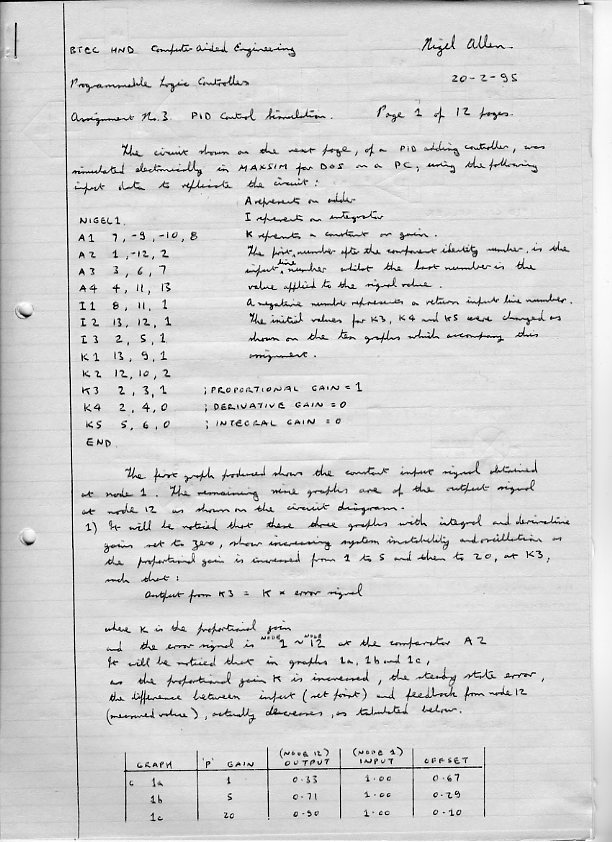 BTEC HND Computer Aided Engineering Nigel Allen
Programmable Logic Controllers 20-2-95
Assignment No. 3. PID Control Simulation. Page 1 of 12 pages.
The circuit shown on the next page, of a PID adding controller, was
simulated electronically in MAXSIM for DOS on a PC, using the following
input data to replicate the circuit:
A represents an adder
NIGEL1. I represents an integrator
A1 7, -9, -10, 8 K repsents a constant or gain.
A2 1, -12, 2 The first number after the component identity number, is the
A3 3, 6, 7 input line number whilst the last number is the
A4 4, 11, 13 value applied to the signal value.
I1 8, 11, 1 A negative number represents a return input line number.
I2 13, 12, 1 The initial values for K3, K4 and K5 were changed as
I3 2, 5, 1 shown on the ten graphs which accompany this
K1 13, 9, 1 assignment.
K2 12, 10, 2
K3 2, 3, 1 ; PROPORTIONAL GAIN = 1
K4 2, 4, 0 ; DERIVATIVE GAIN = 0
K5 5, 6, 0 ; INTEGRAL GAIN = 0
END.
The first graph produced shows the constant input signal obtained
at node 1. The remaining nine graphs are of the output signal
at node 12 as shown on the circuit diagram.
1) It will be noticed that these three graphs with integral and derivative
gains set to zero, show increasing system instability and oscillation as
the proportional gain is increased from 1 to 5 and then to 20, at K3,
such that:
Output from K3 = K * error signal
where K is the proportional gain
and the error signal is NODE 1 ~ NODE 12 at the comparator A2
It will be noticed that in graphs 1a, 1b and 1c,
as the proportional gain K is increased, the steady state error,
the difference between input (set point) and feedback from node 12
(measured value), actually decreases, as tabulated below.
(NODE 12) (NODE 1)
GRAPH 'P' GAIN OUTPUT INPUT OFFSET
1a 1 0.33 1.00 0.67
1b 5 0.71 1.00 0.29
1c 20 0.90 1.00 0.10